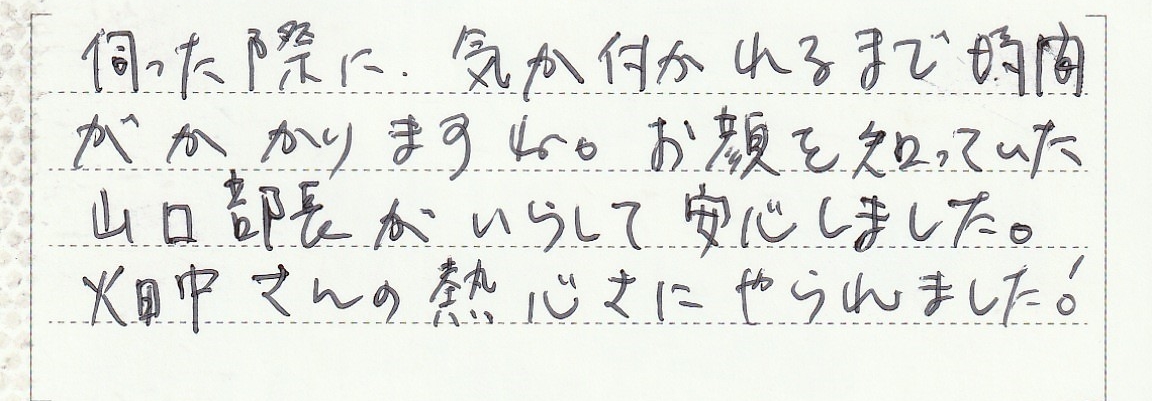 伺った際に、気か付かれるまで時間
がかかりますね。お顔を知っていた
山口部長がいらして安心しました。
畑中さんの熱心さにやられました!